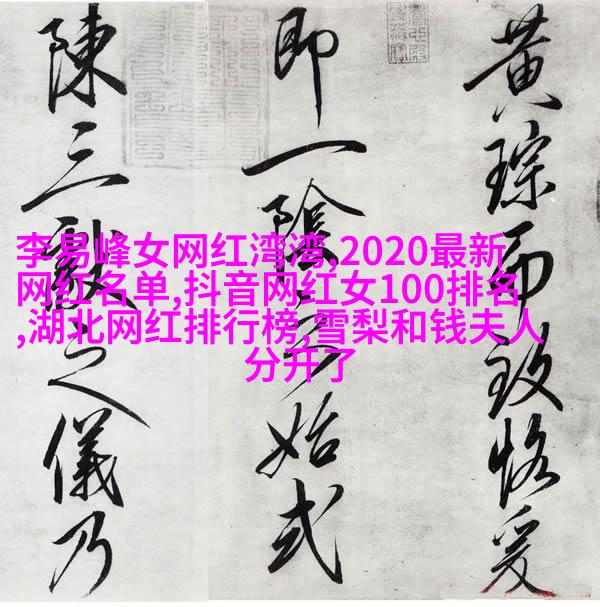 黄琮而致恪爰
即一陰之始式
陳三獻之儀乃
李易峰女网红湾湾,2020最新
网红名单,抖音网红女100排名
,湖北网红排行榜,雪梨和钱夫人
分开了